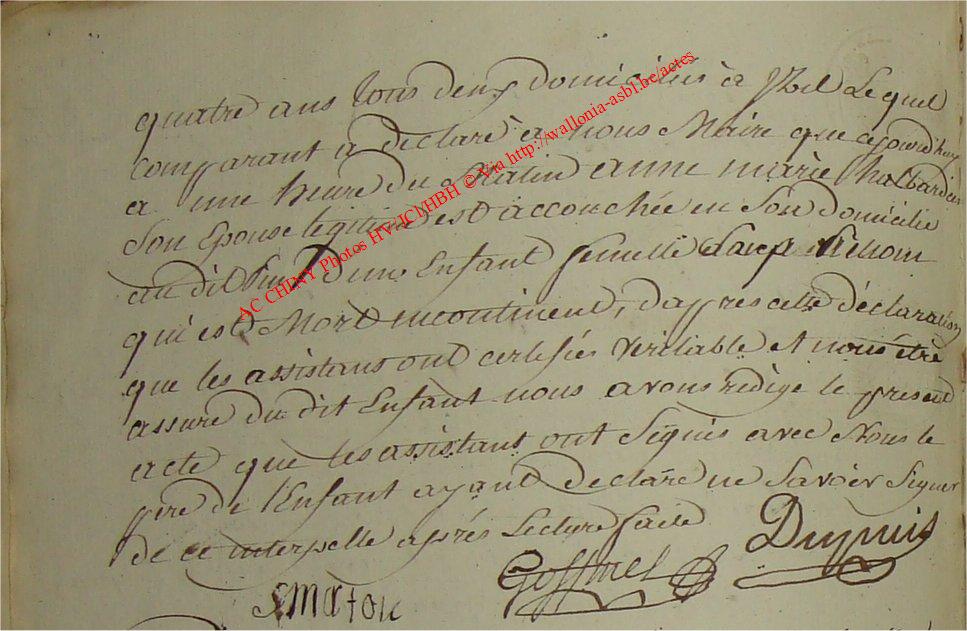 quatre ans tous deux domiciliés à Lequel
comparant a déclaré à nous Maire que cejourdhuy
a une heure du Matin anne marie halbardier
Son Epouse legitime est accouchée en Son domicile
au dit d'une Enfant femelle Sans
qui est Mort incontinent, d'apres cette déclaration
que les assistans ont certifiés veritable et nous être
assuré du dit Enfant nous avons rédigé le present
acte que les assistant ont Signés avec Nous le
pere de l'Enfant ayant declaré ne Savoir Signer
de ce interpellé après Lecture faite
Goffinet Dupuis
S maton
AC CHINY Photos HV-JCl/HBH © Via http://wallonia-asbl.be/actes